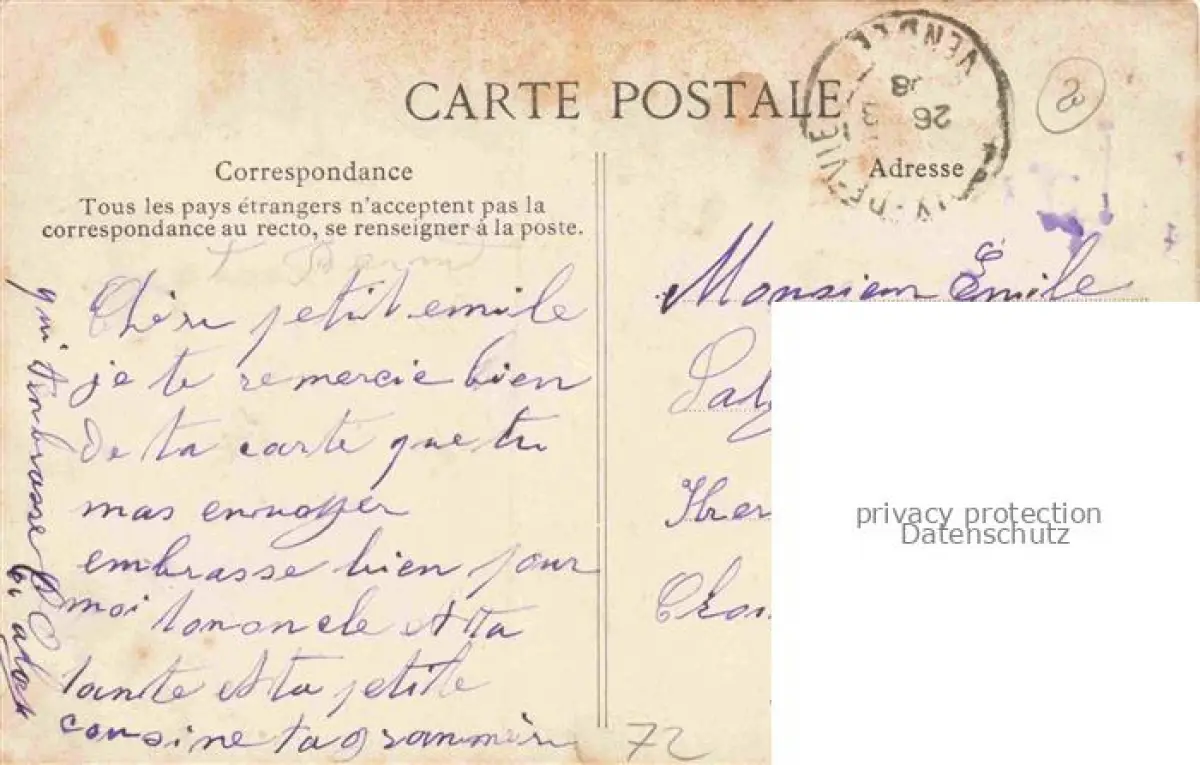 CARTE POSTALE
VENDÉE
26
08
Correspondance
Tous les pays étrangers n'acceptent pas la
correspondance au recto, se renseigner à la poste.
Adresse
Chère petit emile
je te remercie bien
De ta carte que tu
mas envoyer
embrasse bien pour
moi tononcle et ta
tante et ta petite
cousine ta grammère
qui t'embrasse
Monsieur Émile
privacy protection
Datenschutz
72